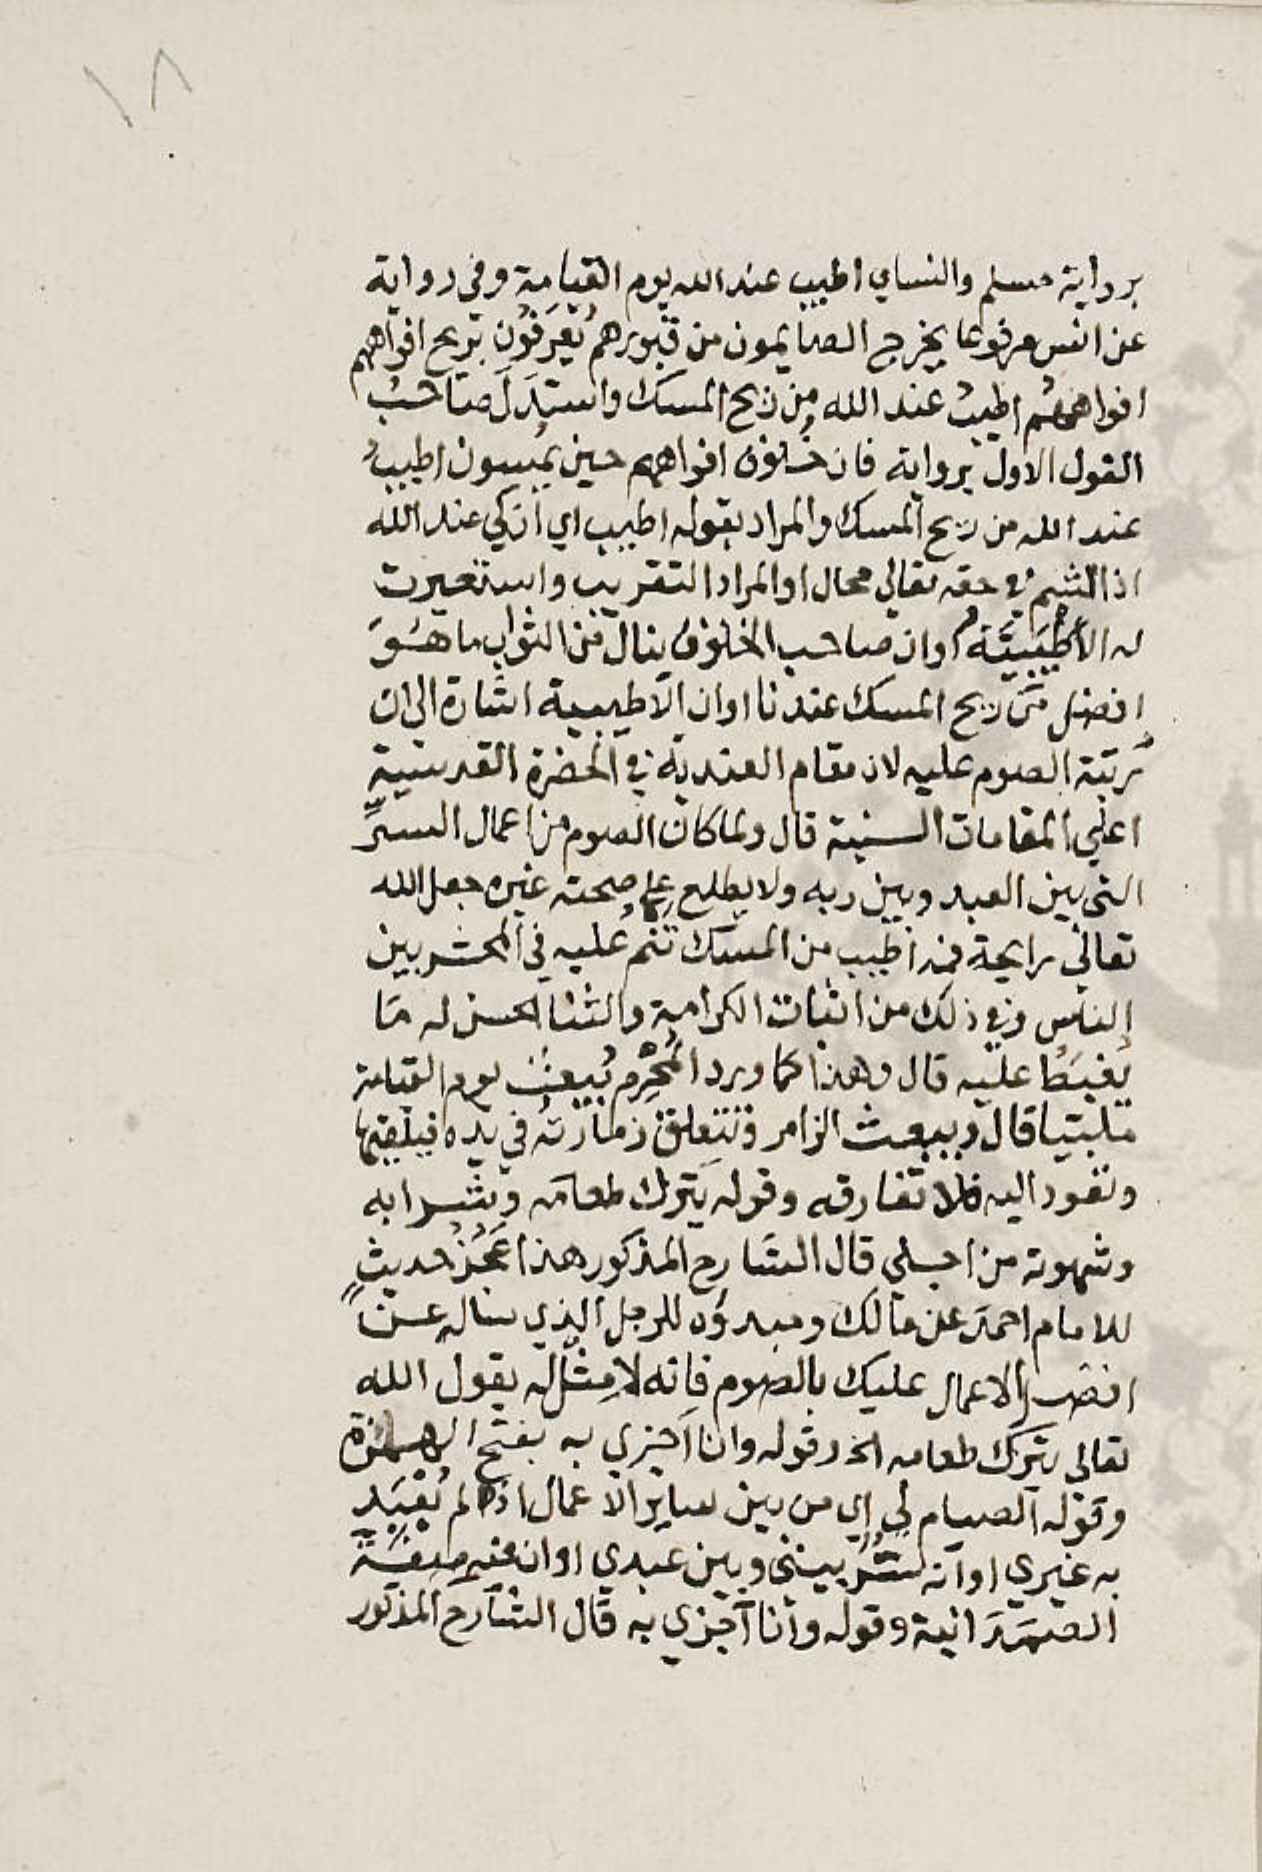 ١٨
برواية مسلم والنساي اطيب عند الله يوم القيامة وفي رواية
عن انس مرفوعا يخرج الصايمون من قبورهم يُعرَفُون بريح افواههم
افواههم اطيبُ عند الله من ريح المسك واستدَلَّ صاحبُ
القول الاول برواية فان خُلوف افواههم حين يُمسون اطيبُ
عند الله من ريح المسك والمراد بقوله اطيب اي ازكي عند الله
اذ الشم في حقه تعالي محال او المراد التقريب واستعيرت
له الأطْيَبِيَّة او ان صاحب الخلوف ينال من الثواب ما هُوَ
افضل من ريح المسك عندنا او ان الاطيبية اشارة الى ان
رتبة الصوم علية لان مقام العندية في الحضرة القدسية
اعلي المقامات السنية قال ولما كان الصوم من اعمال السرِّ
التي بين العبد وبين ربه ولا يطلع علي صحته غيره جعل الله
تعالي رايحة فمه اطيب من المسك تنم عليه في المحشر بين
الناس وفي ذلك من اثبات الكرامة والثنا الحسن له مَا
يُغبَطُ عليه قال وهذا كما ورد المُحْرِم يُبعث يوم القيامة
ملبيا قال ويبعث الزامر وتتعلق زمارته في يده فيلقيها
وتعود اليه فلا تفارقه وقوله يَترك طعامه وشرابه
وشهوته من اجلي قال الشارح المذكور هذا عَجُزُ حديثٍ
للامام احمدَ عن مالك ومبدؤه للرجل الذي ساله عن
افضل الاعمال عليك بالصوم فانه لا مِثْلَ له يقول الله
تعالي يترك طعامه الخ وقوله وانا اَجزي به بفتح الهمزة
وقوله الصيام لي اي من بين ساير الاعمال اذ لم يُعْبَد
به غيري او انه سِرٌّ بيني وبين عبدي او ان فيه صِفَةَ
الصَمَدَانية وقوله وانا اَجزي به قال الشارح المذكور